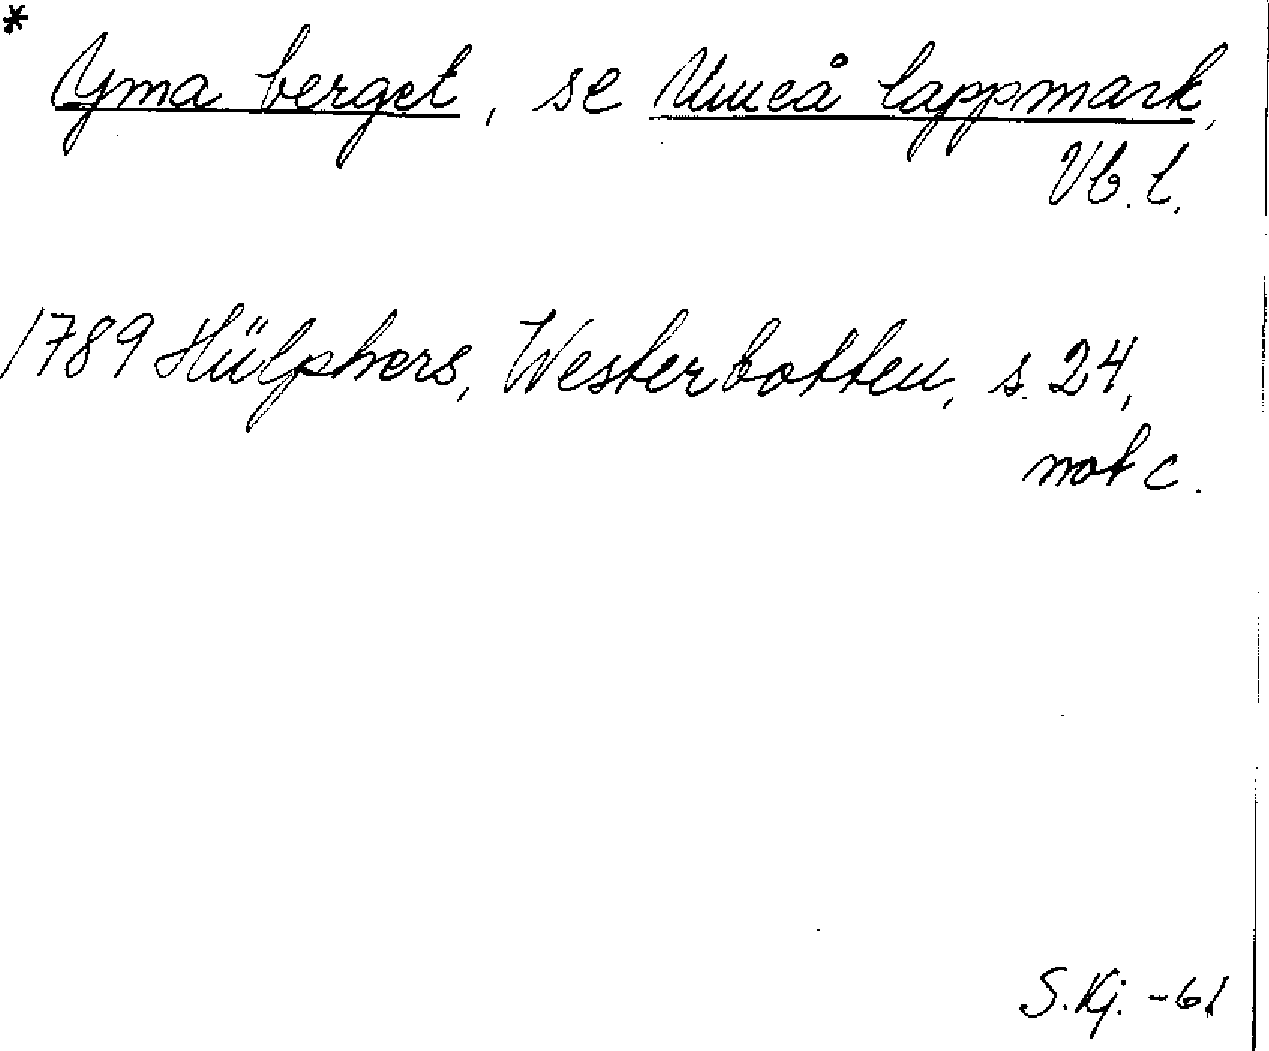 *
Yma berget, se Umeå lappmark,
Vb. l.
1789 Hülphers, Westerbotten, s. 24,
not c.
S. Kj. -61